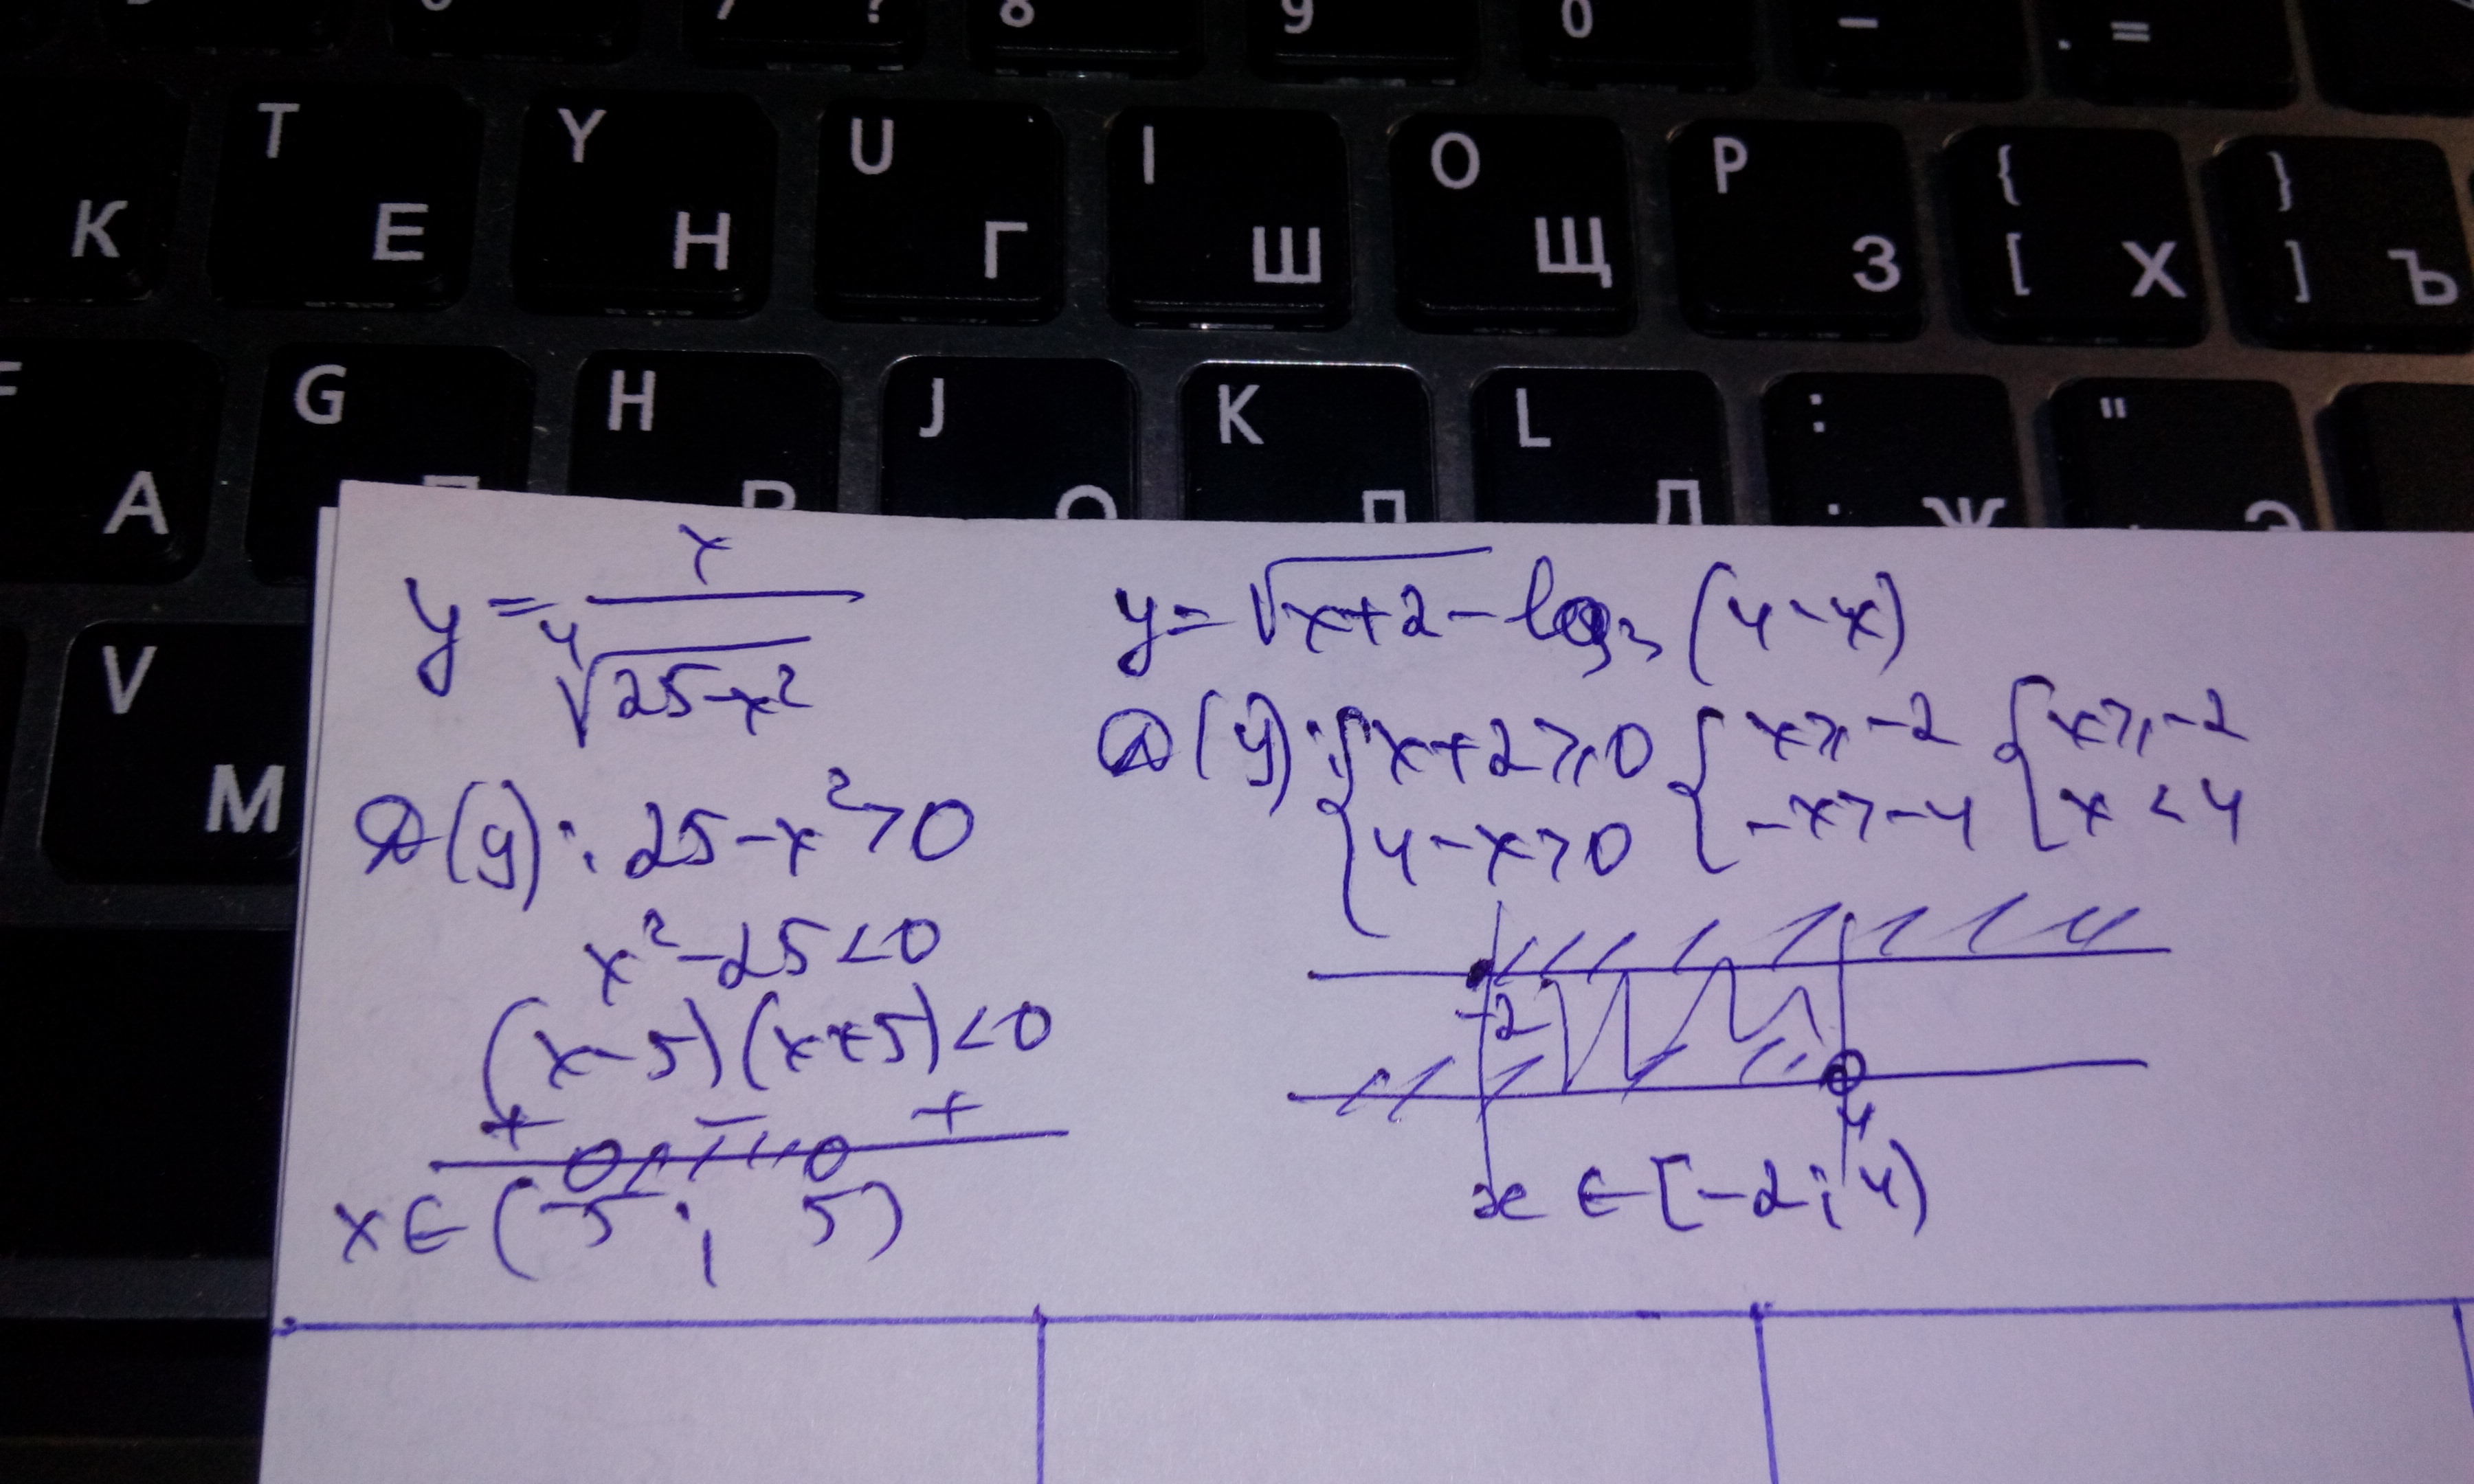 7 ? 8 9 0 _ . =
T Y U I O P { }
К Е Н Г Ш Щ З [ Х ] Ъ
F G H J K L : "
А
V
М
y = x / ⁴√(25-x²)
D(y): 25-x²>0
x²-25<0
(x-5)(x+5)<0
+ - +
x∈(-5; 5)
y=√(x+2) - log₃(4-x)
D(y): { x+2⩾0 { x⩾-2 { x⩾-2
4-x>0 -x>-4 x<4
-2
4
x∈[-2;4)